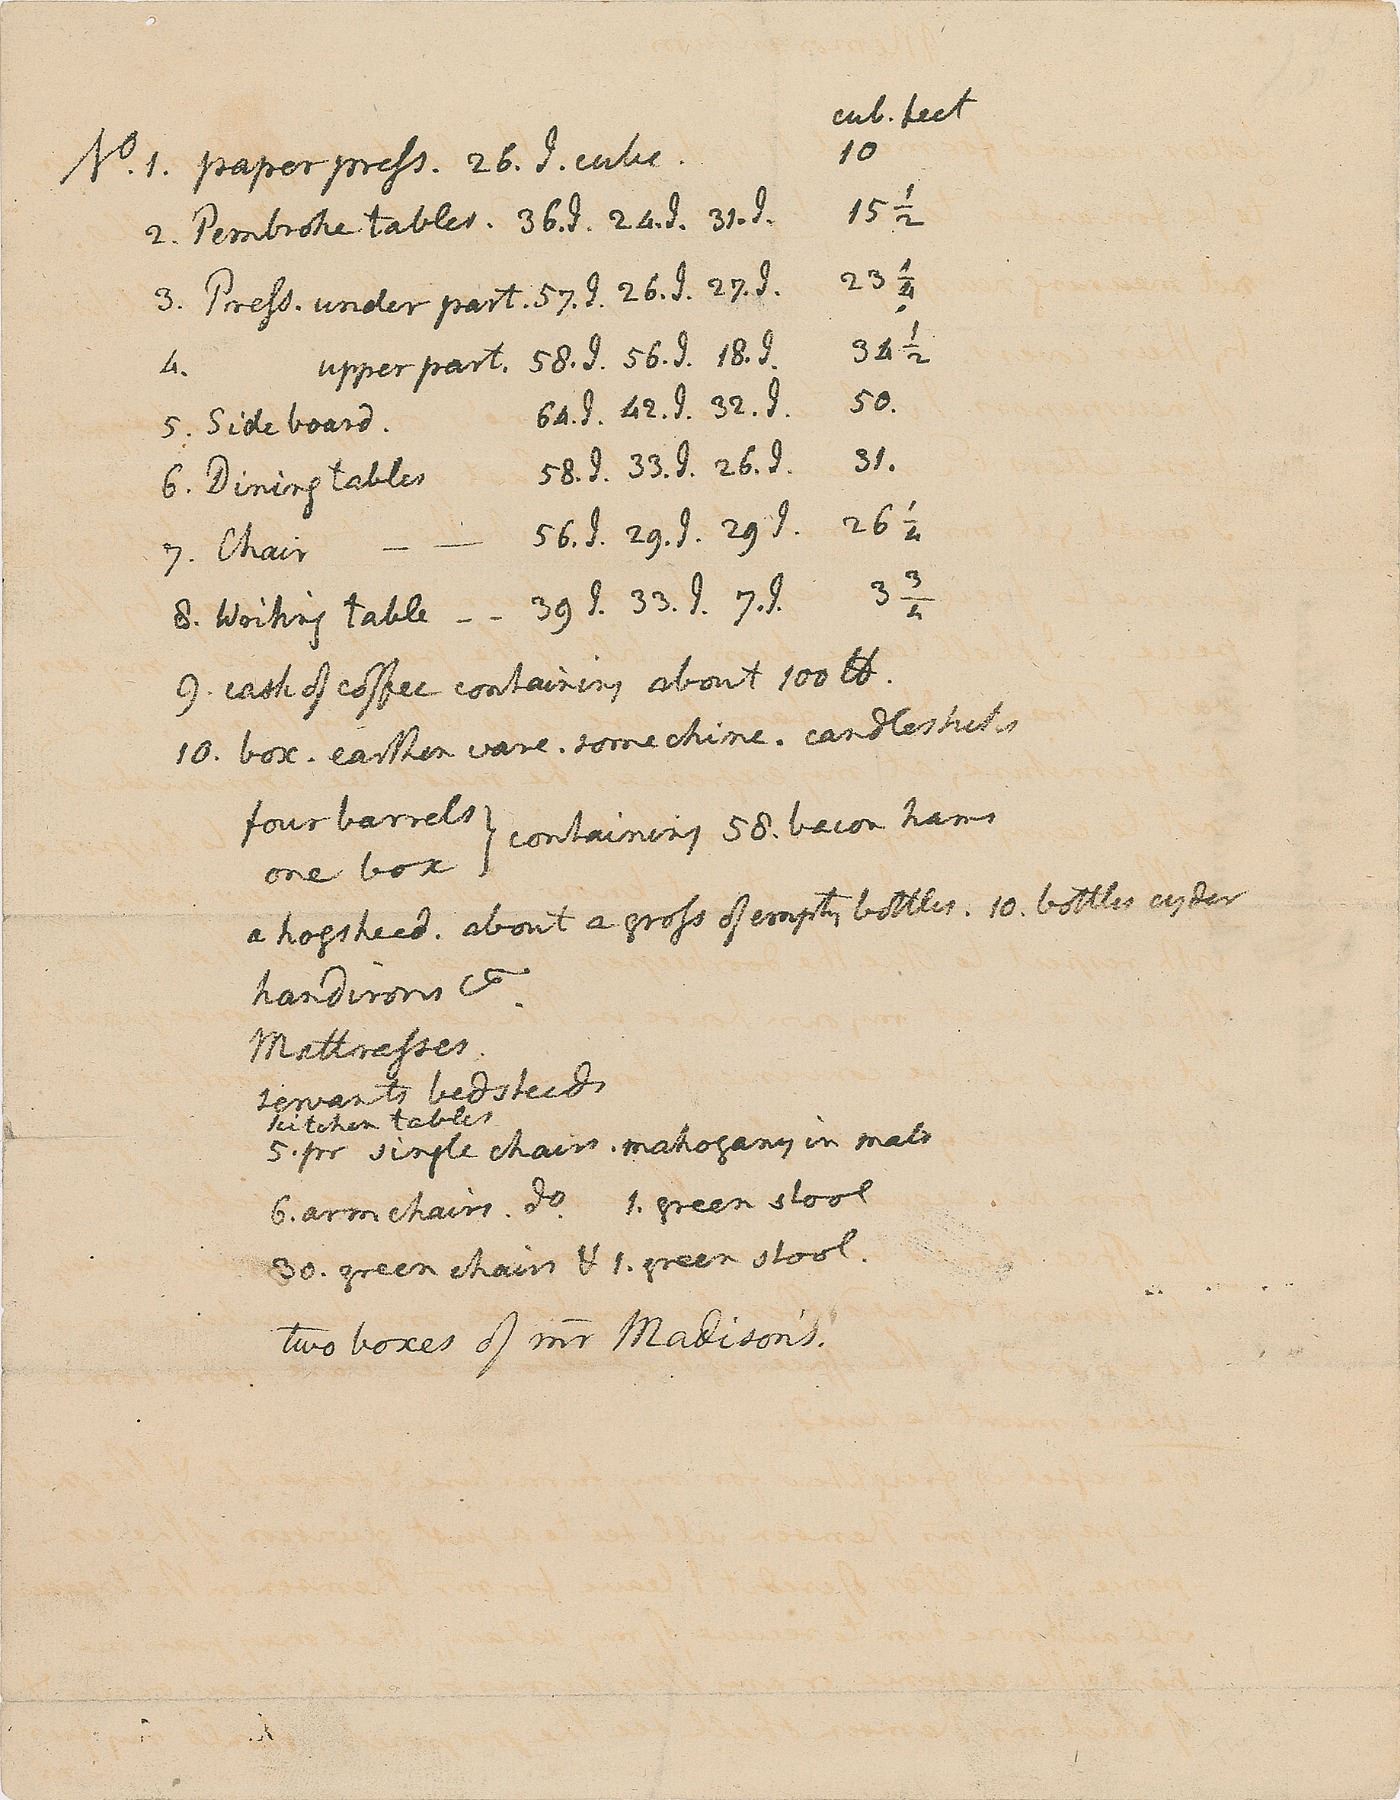 cub. feet
No. 1. paper press. 26. I. cube. 10
2. Pembroke tables. 36.I. 24.I. 31.I. 15 1/2
3. Press. under part. 57.I. 26.I. 27.I. 23 1/4
4. upper part. 58.I. 56.I. 18.I. 34 1/2
5. Side board. 64.I. 42.I. 32.I. 50.
6. Dining tables 58.I. 33.I. 26.I. 31.
7. Chair — — 56.I. 29.I. 29 I. 26 1/4
8. Writing table - - 39 I. 33.I. 7.I. 3 3/4
9. cask of coffee containing about 100 lb.
10. box. earthen ware. some chine. candlesticks
four barrels } containing 58. bacon hams
one box
a hogshead. about a gross of empty bottles. 10. bottles cyder
handirons &c.
Mattresses.
servants bedsteads
kitchen tables
5. pr single chairs. mahogany in mats
6. arm chairs. do. 1. green stool
30. green chairs & 1. green stool.
two boxes of mr Madison's.